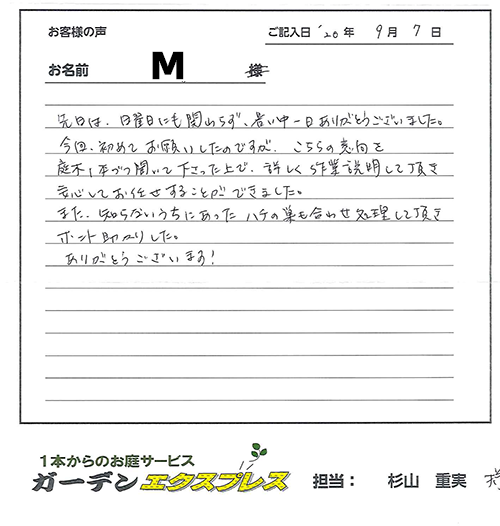 お客様の声
ご記入日 '20 年 9 月 7 日
お名前 M 様
先日は、日曜日にも関わらず、暑い中一日ありがとうございました。
今回、初めてお願いしたのですが、こちらの意向を
庭木1本づつ聞いて下さった上で、詳しく作業説明して頂き
安心してお任せすることができました。
また、知らないうちにあったハチの巣も合わせ処理して頂き
ホント助かりました。
ありがとうございます!
1本からのお庭サービス
ガーデンエクスプレス
担当: 杉山 重実 様